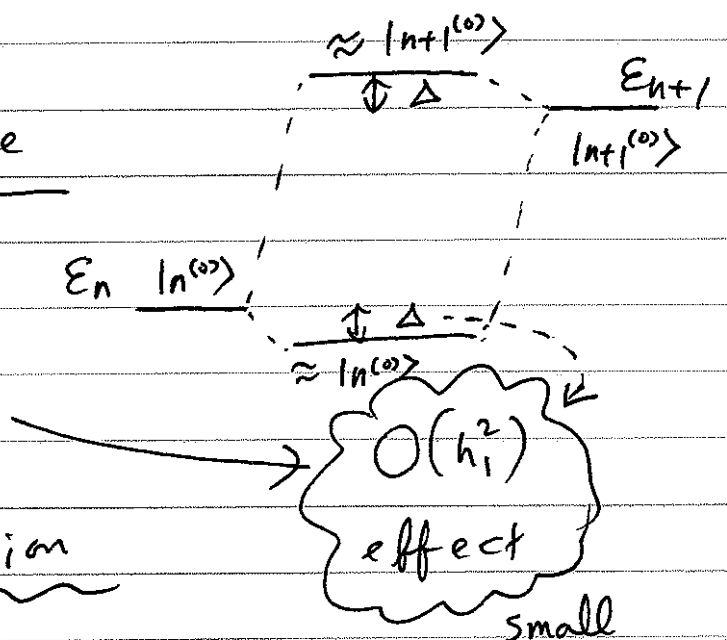 ≈ |n+1⁽⁰⁾⟩
Δ
εn+1
e
|n+1⁽⁰⁾⟩
εn |n⁽⁰⁾⟩
Δ
≈ |n⁽⁰⁾⟩
O(h₁²)
effect
ion
small